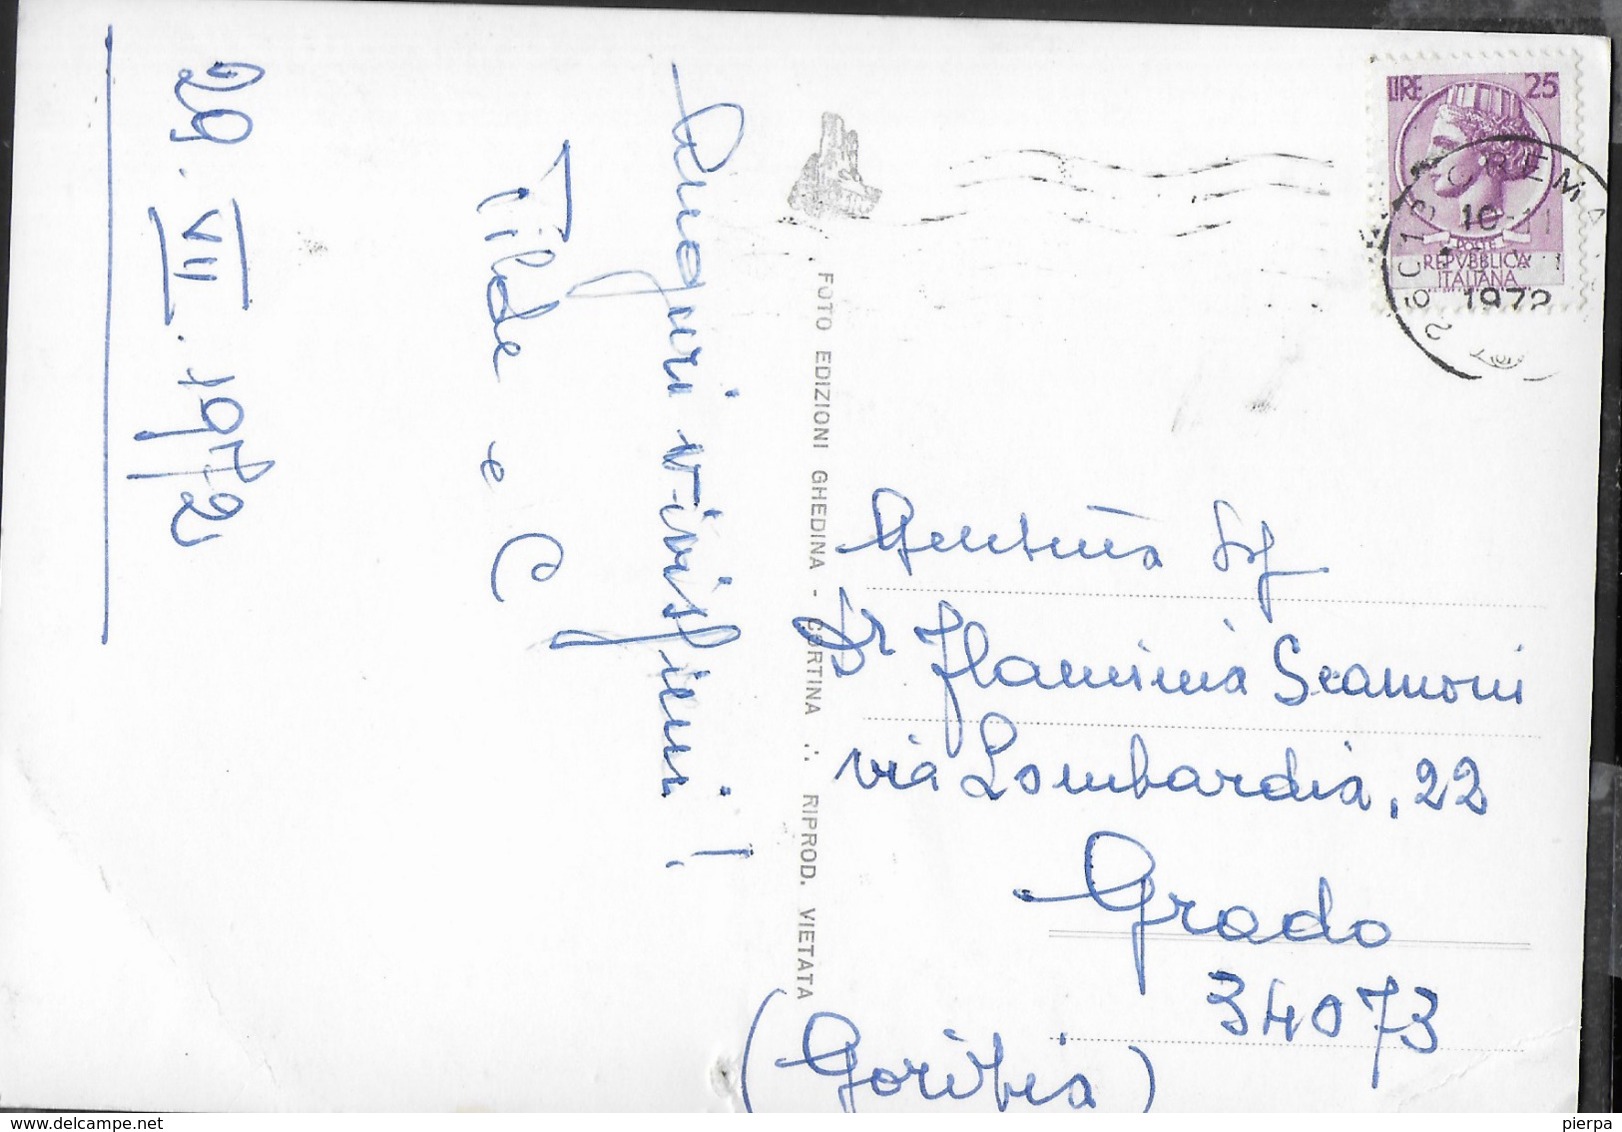 29. VII. 1972
Auguri vivissimi!
Tilde e C
FOTO EDIZIONI GHEDINA - CORTINA ∴ RIPROD. VIETATA
LIRE 25
POSTE
REPVBBLICA
ITALIANA
26013 CREMA
10-11
1972
Gentma
Dr Flaminia Scamoni
via Lombardia, 22
Grado
34073
(Gorizia)
delcampe.net
pierpa